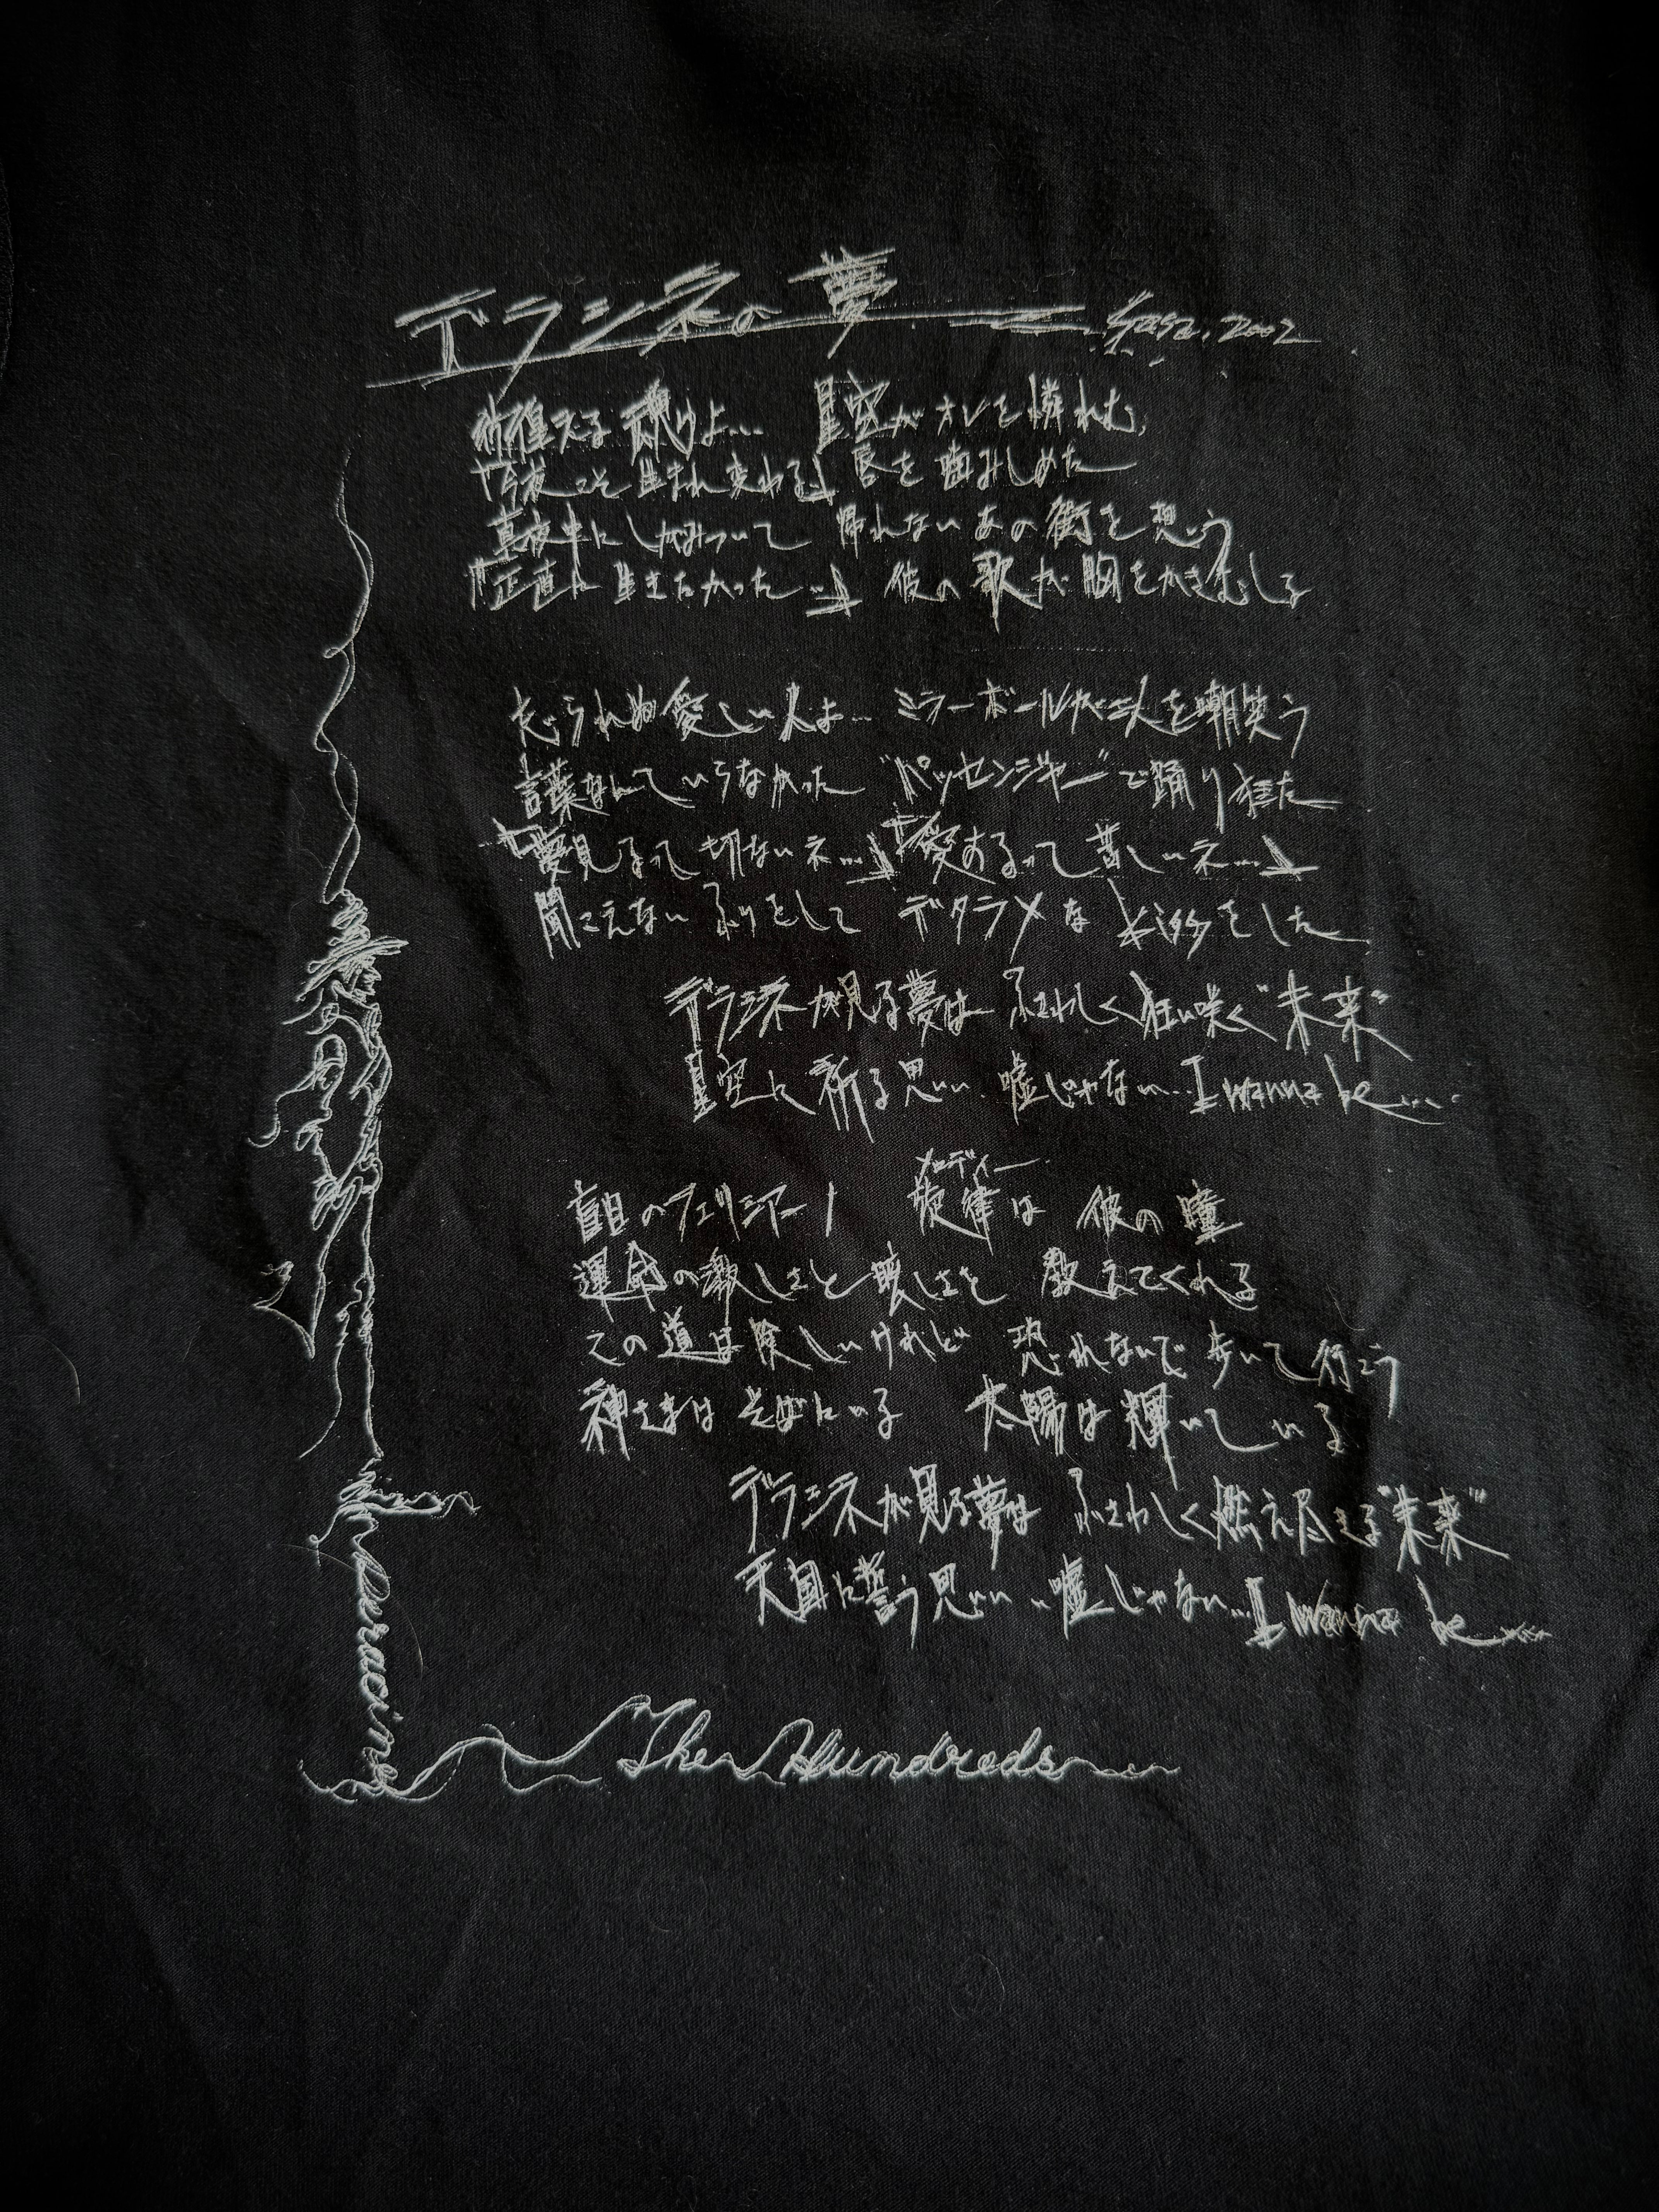 デラシネの夢 2002
彷徨える魂よ… 星空がオレを憐れむ
「今夜こそ生まれ変わる」 唇を噛みしめた
真夜中にしがみついて 帰れないあの街を想う
「正直に生きたかった…」 彼の歌が胸をかきむしる
忘られぬ愛しい人よ… ミラーボールが二人を嘲笑う
言葉なんていらなかった “パッセンジャー”で踊り狂った
「夢見るって切ないネ…」「愛するって苦しいネ…」
聞こえないふりをして デタラメなキスをした
デラシネが見る夢は ふさわしく狂い咲く“未来”
星空に祈る思い 嘘じゃない…I wanna be....
メロディー
盲目のフェリシアーノ 旋律は 彼の瞳
運命の激しさと哀しさを 教えてくれる
この道は険しいけれど 恐れないで歩いて行こう
神さまはそばにいる 太陽は輝いている
デラシネが見る夢は ふさわしく燃え尽きる“未来”
天国に誓う思い…嘘じゃない…I wanna be....
deracine
The Hundreds